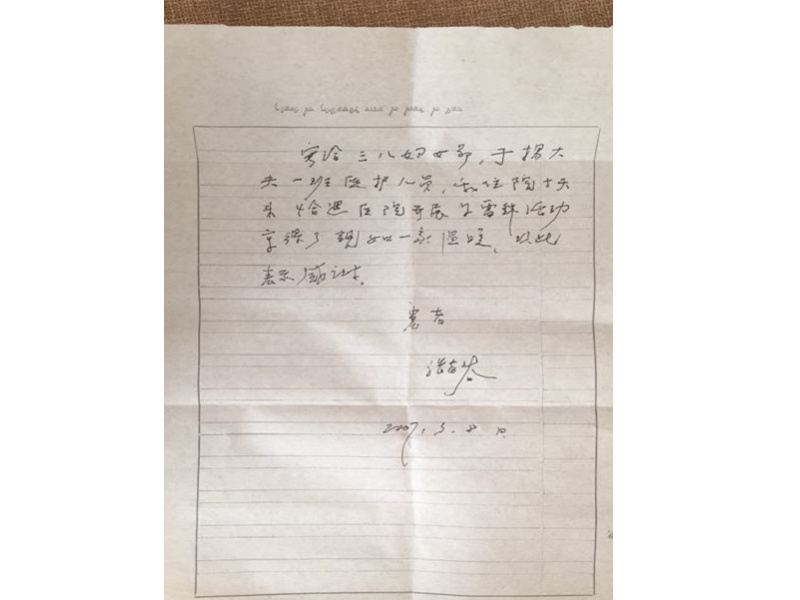 写给三八妇女节,于
一班医护人员,我住院十天
来恰遇医院开展学雷锋活动
享 了亲如一家温暖,以此
表示感谢。
患者
张
2007.3.8日